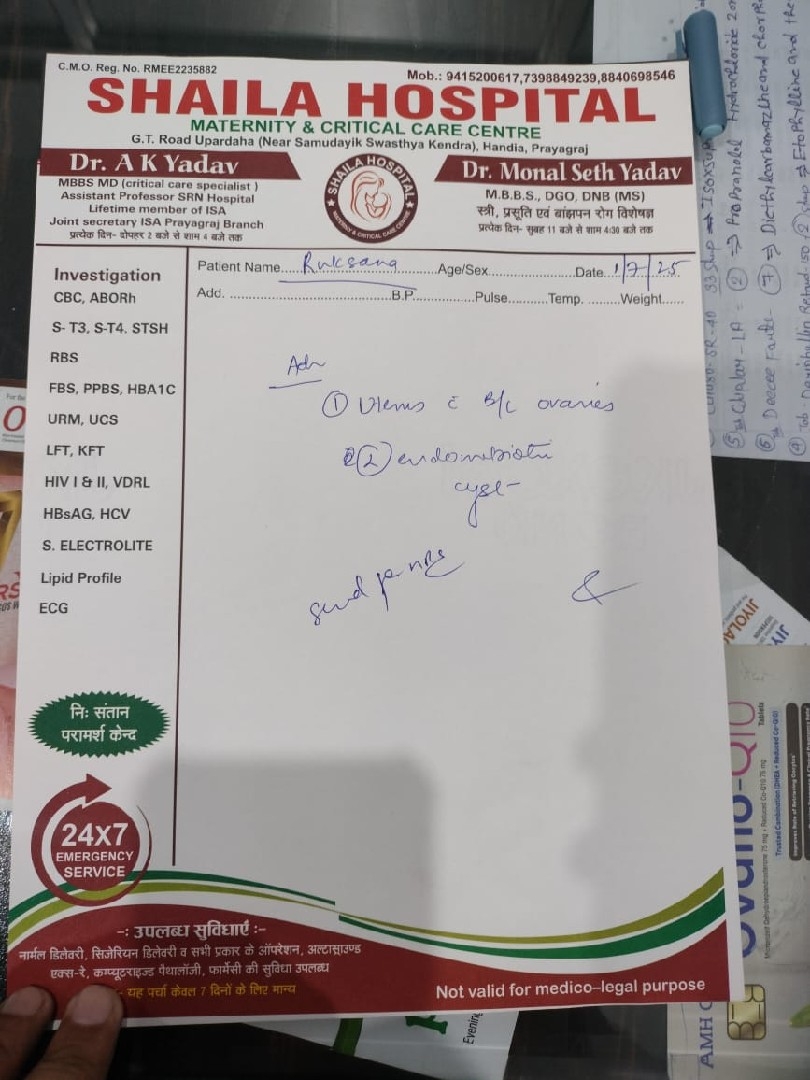 C.M.O. Reg. No. RMEE2235882
Mob.: 9415200617,7398849239,8840698546
SHAILA HOSPITAL
MATERNITY & CRITICAL CARE CENTRE
G.T. Road Upardaha (Near Samudayik Swasthya Kendra), Handia, Prayagraj
Dr. A K Yadav
MBBS MD (critical care specialist )
Assistant Professor SRN Hospital
Lifetime member of ISA
Joint secretary ISA Prayagraj Branch
प्रत्येक दिन- दोपहर 2 बजे से शाम 4 बजे तक
SHAILA HOSPITAL
MATERNITY & CRITICAL CARE CENTRE
Dr. Monal Seth Yadav
M.B.B.S., DGO, DNB (MS)
स्त्री, प्रसूति एवं बांझपन रोग विशेषज्ञ
प्रत्येक दिन- सुबह 11 बजे से शाम 4:30 बजे तक
Patient Name....Ruksana....Age/Sex..............Date. 1/7/25
Add. ..............B.P..............Pulse..........Temp. ........Weight......
Investigation
CBC, ABORh
S- T3, S-T4. STSH
RBS
FBS, PPBS, HBA1C
URM, UCS
LFT, KFT
HIV I & II, VDRL
HBsAG, HCV
S. ELECTROLITE
Lipid Profile
ECG
Adv
① Uterus c̄ B/L ovaries
② endometriotic
cyst
send for
निः संतान
परामर्श केन्द
24x7
EMERGENCY
SERVICE
-: उपलब्ध सुविधाएँ :-
नार्मल डिलेवरी, सिजेरियन डिलेवरी व सभी प्रकार के ऑपरेशन, अल्टासाउण्ड
एक्स-रे, कम्प्यूटराइज्ड पैथालॉजी, फार्मेसी की सुविधा उपलब्ध
यह पर्चा केवल 7 दिनों के लिए मान्य
Not valid for medico–legal purpose
Tablets
AMH